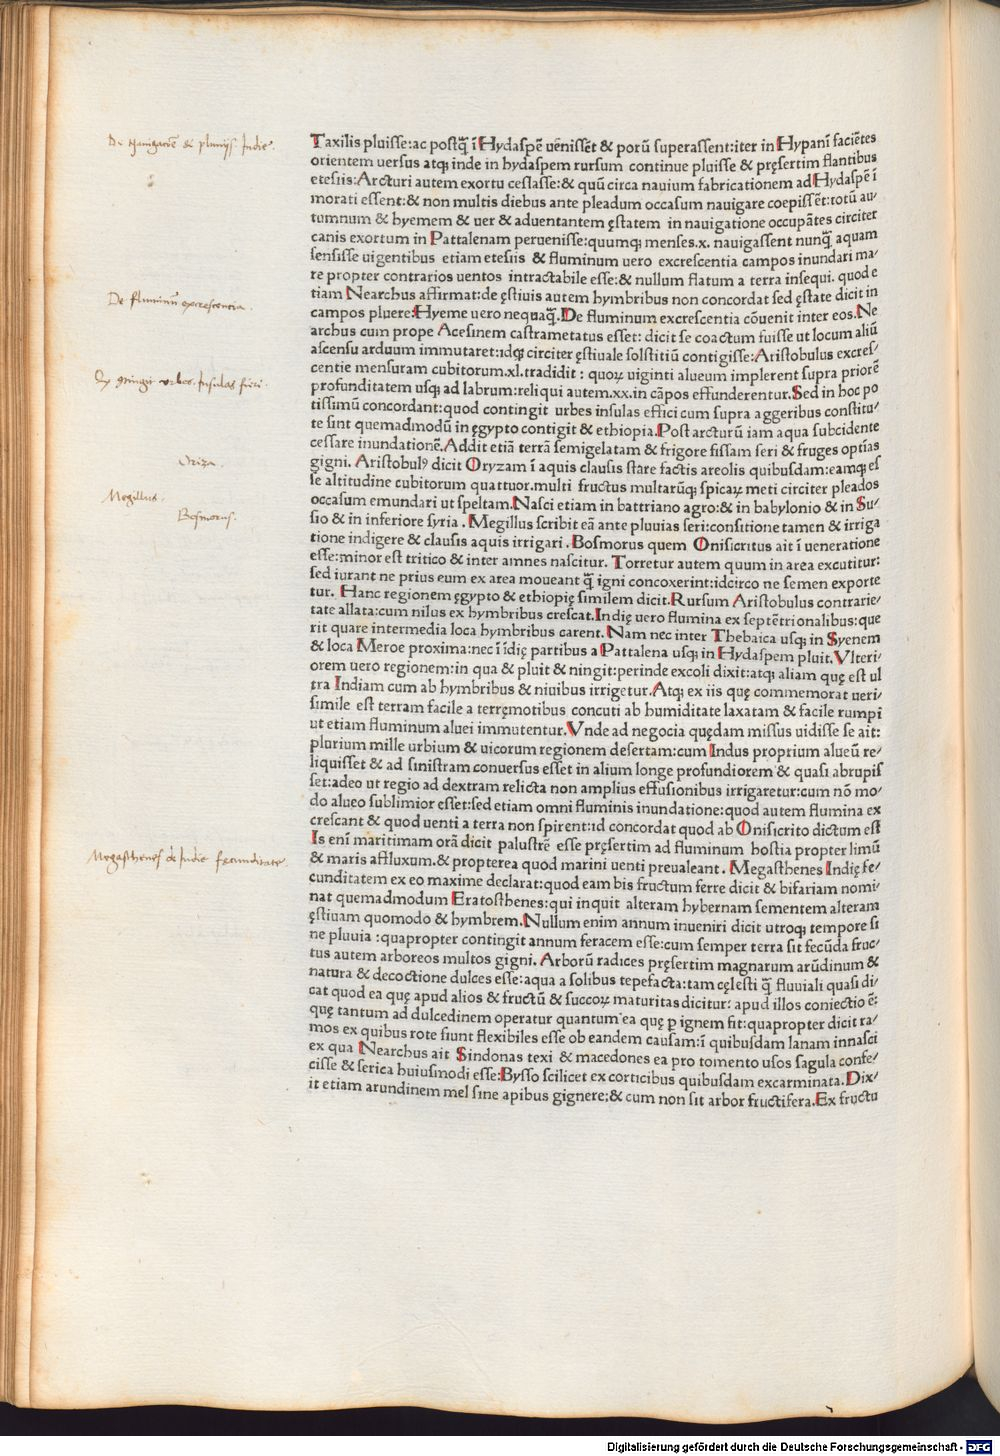 De Nauigatõe & pluuijs Indie.
De fluminũ excrescentia
Insulas fieri.
Oriza.
Megillus.
Bosmorus.
Megasthenes de Indie fecunditate.
Taxilis pluisse:ac postq̃ ĩ Hydaspẽ uẽnissẽt & porũ superassent:iter in Hypanĩ faciẽtes
orientem uersus atq; inde in hydaspem rursum continue pluisse & pręsertim flantibus
etesiis:Arcturi autem exortu cessasse:& quũ circa nauium fabricationem ad Hydaspẽ ĩ
morati essent:& non multis diebus ante pleadum occasum nauigare coepissẽt:rotũ au/
tumnum & hyemem & uer & aduentantem ęstatem in nauigatione occupãtes circiter
canis exortum in Pattalenam peruenisse:quumq; menses.x. nauigassent nunq̃ aquam
sensisse uigentibus etiam etesiis & fluminum uero excrescentia campos inundari ma/
re propter contrarios uentos intractabile esse:& nullum flatum a terra insequi. quod e
tiam Nearchus affirmat:de ęstiuis autem hymbribus non concordat sed ęstate dicit in
campos pluere:Hyeme uero nequaq̃.De fluminum excrescentia cõuenit inter eos.Ne
archus cum prope Acesinem castrametatus esset: dicit se coactum fuisse ut locum aliũ
ascensu arduum immutaret:idq; circiter ęstiuale solstitiũ contigisse:Aristobulus excres/
centie mensuram cubitorum.xl.tradidit : quoꝝ uiginti alueum implerent supra priorẽ
profunditatem usq; ad labrum:reliqui autem.xx.in cãpos effunderentur.Sed in hoc po
tissimũ concordant:quod contingit urbes insulas effici cum supra aggeribus constitu/
te sint quemadmodũ in ęgypto contigit & ethiopia.Post arcturũ iam aqua subcidente
cessare inundationẽ.Addit etiã terrã semigelatam & frigore fissam seri & fruges optĩas
gigni. Aristobulꝰ dicit Oryzam ĩ aquis clausis stare factis areolis quibusdam:eamq; es
se altitudine cubitorum quattuor.multi fructus multarũq; spicaꝝ meti circiter pleados
occasum emundari ut speltam.Nasci etiam in battriano agro:& in babylonio & in Su/
sio & in inferiore syria . Megillus scribit eã ante pluuias seri:consitione tamen & irriga
tione indigere & clausis aquis irrigari . Bosmorus quem Onisicritus ait ĩ ueneratione
esse:minor est tritico & inter amnes nascitur. Torretur autem quum in area excutitur:
sed iurant ne prius eum ex area moueant q̃ igni concoxerint:idcirco ne semen exporte
tur. Hanc regionem ęgypto & ethiopię similem dicit.Rursum Aristobulus contrarie/
tate allata:cum nilus ex hymbribus crescat.Indię uero flumina ex septẽtrionalibus:que
rit quare intermedia loca hymbribus carent. Nam nec inter Thebaica usq; in Syenem
& loca Meroe proxima:nec ĩ ĩdię partibus a Pattalena usq; in Hydaspem pluit. Vlteri/
orem uero regionem:in qua & pluit & ningit:perinde excoli dixit:atq; aliam quę est ul
tra Indiam cum ab hymbribus & niuibus irrigetur.Atq; ex iis quę commemorat ueri/
simile est terram facile a terręmotibus concuti ab humiditate laxatam & facile rumpĩ
ut etiam fluminum aluei immutentur.Vnde ad negocia quędam missus uidisse se ait:
plurium mille urbium & uicorum regionem desertam:cum Indus proprium alueũ re/
liquisset & ad sinistram conuersus esset in alium longe profundiorem & quasi abrupis
set:adeo ut regio ad dextram relicta non amplius effusionibus irrigaretur:cum nõ mo/
do alueo sublimior esset:sed etiam omni fluminis inundatione:quod autem flumina ex
crescant & quod uenti a terra non spirent:id concordat quod ab Onisicrito dictum est
Is enĩ maritimam orã dicit palustrẽ esse pręsertim ad fluminum hostia propter limũ
& maris affluxum.& propterea quod marini uenti preualeant . Megasthenes Indię fe/
cunditatem ex eo maxime declarat:quod eam bis fructum ferre dicit & bifariam nomi/
nat quemadmodum Eratosthenes:qui inquit alteram hybernam sementem alteram
ęstiuam quomodo & hymbrem.Nullum enim annum inueniri dicit utroq; tempore si
ne pluuia :quapropter contingit annum feracem esse:cum semper terra sit fecũda fruc/
tus autem arboreos multos gigni. Arborũ radices pręsertim magnarum arũdinum &
natura & decoctione dulces esse:aqua a solibus tepefacta:tam cęlesti q̃ fluuiali quasi di/
cat quod ea quę apud alios & fructũ & succoꝝ maturitas dicitur: apud illos coniectio ẽ:
quę tantum ad dulcedinem operatur quantum ea quę ꝑ ignem fit:quapropter dicit ra/
mos ex quibus rote fiunt flexibiles esse ob eandem causam:ĩ quibusdam lanam innasci
ex qua Nearchus ait Sindonas texi & macedones ea pro tomento usos sagula confe/
cisse & serica huiusmodi esse:Bysso scilicet ex corticibus quibusdam excarminata.Dix/
it etiam arundinem mel sine apibus gignere;& cum non sit arbor fructifera.Ex fructu
Digitalisierung gefördert durch die Deutsche Forschungsgemeinschaft - DFG